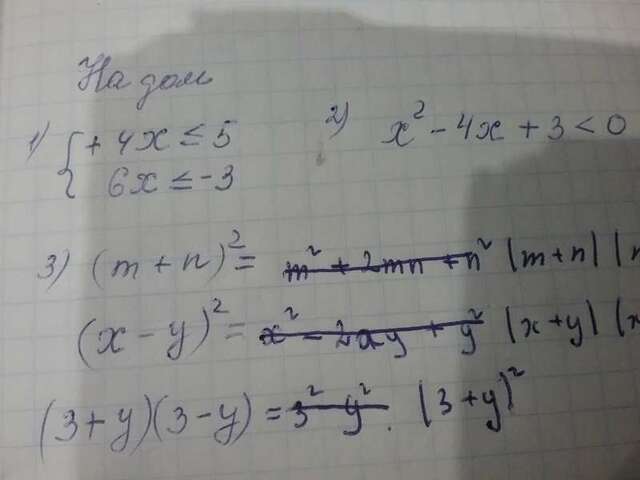 На дом
1) { + 4x ≤ 5
6x ≤ -3
2) x² - 4x + 3 < 0
3) (m + n)² = m² + 2mn + n² (m+n) (
(x - y)² = x² - 2xy + y² (x+y) (x
(3+y)(3-y) = 3² y². (3+y)²